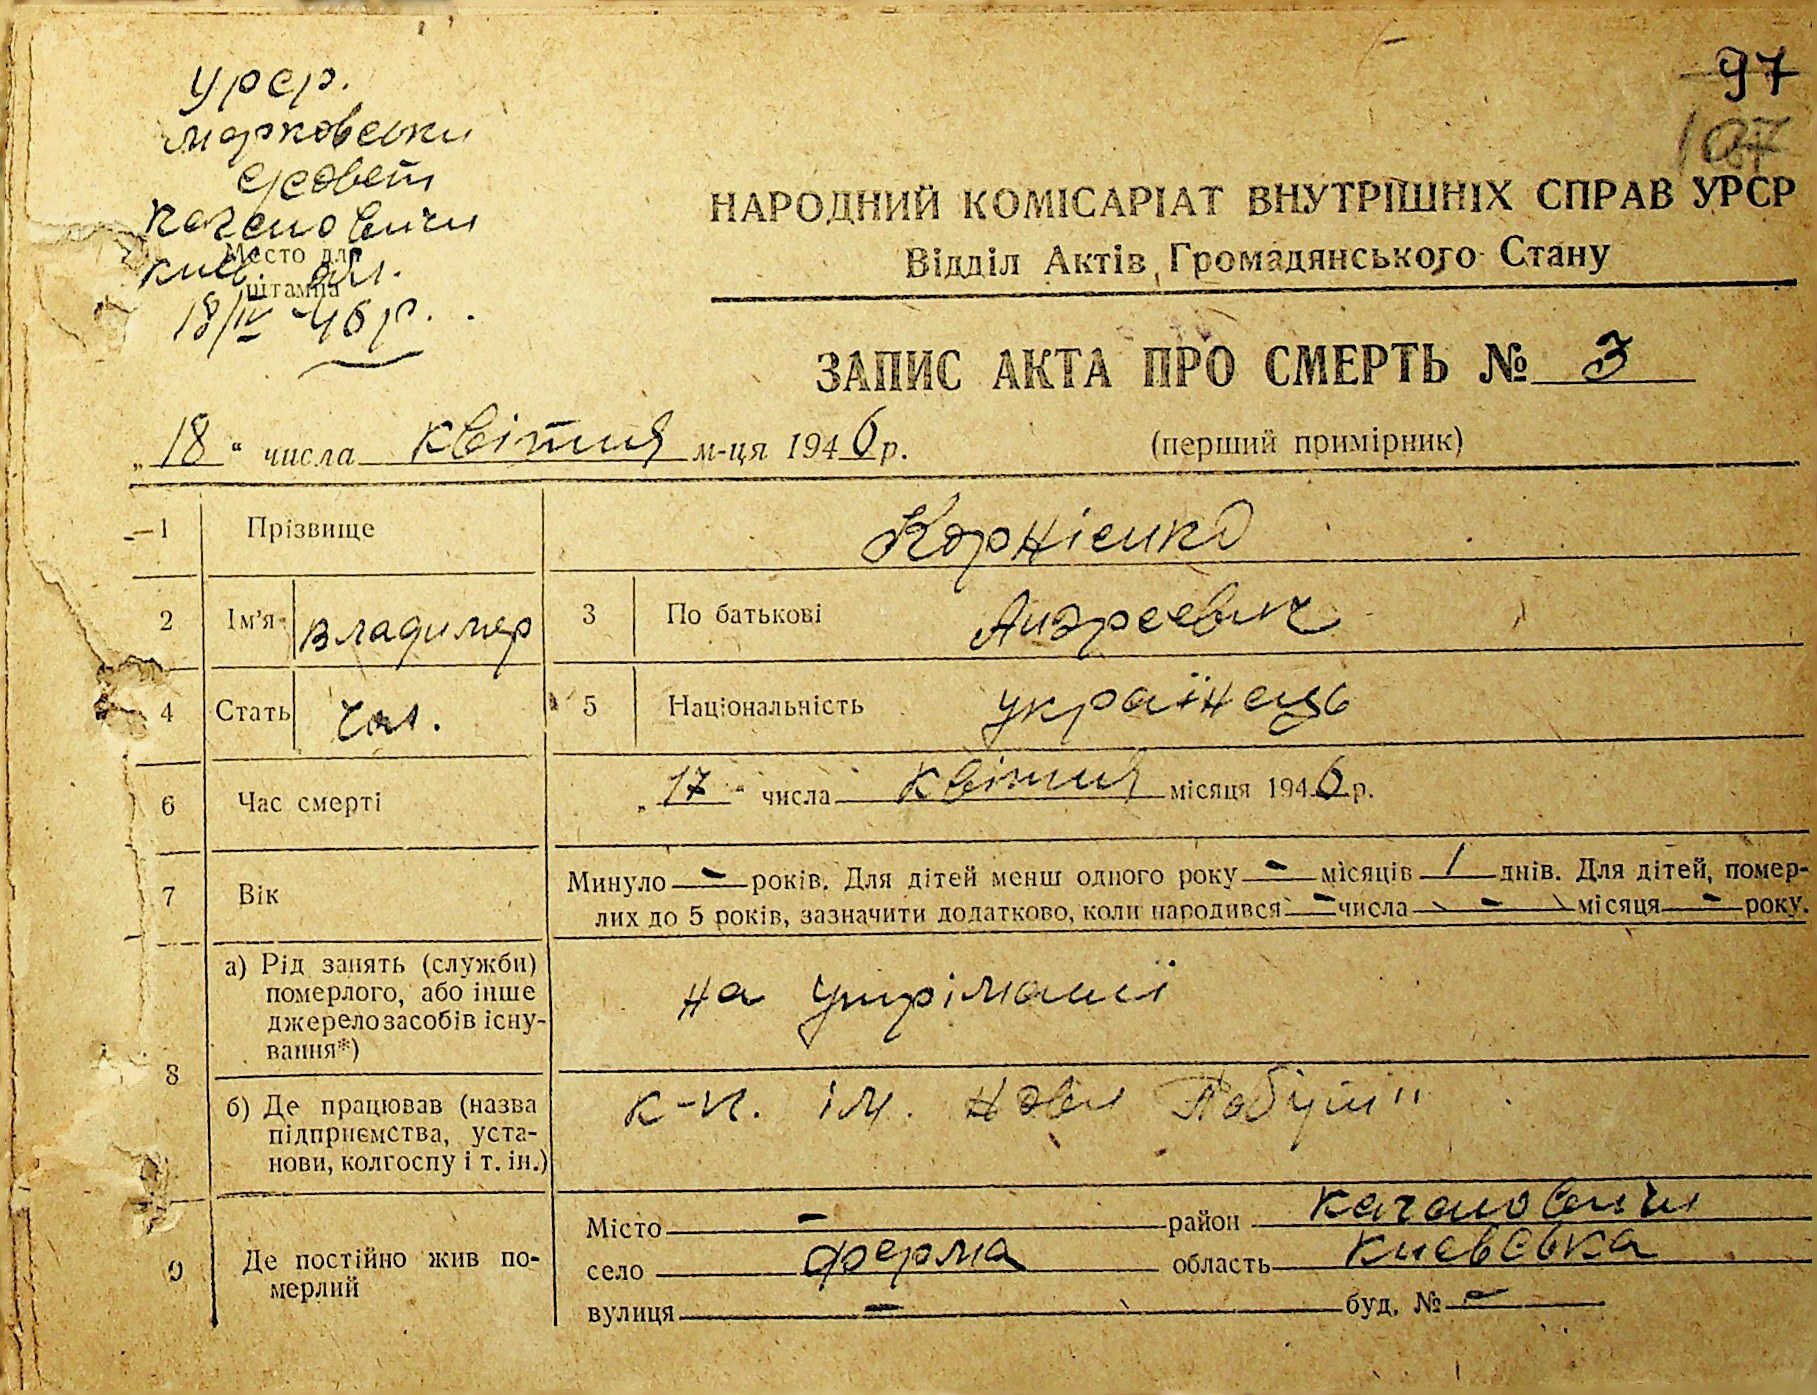 97
107
урср.
Марковски
с/совет
Кагановичи
Київ обл.
Место для
штампа
18/IV-46р.
НАРОДНИЙ КОМІСАРІАТ ВНУТРІШНІХ СПРАВ УРСР
Відділ Актів Громадянського Стану
ЗАПИС АКТА ПРО СМЕРТЬ № 3
„18“ числа квітня м-ця 1946 р.
(перший примірник)
1 Прізвище Корнієнко
2 Ім'я Владимер 3 По батькові Андреевич
4 Стать чол. 5 Національність українець
6 Час смерті „17“ числа квітня місяця 1946 р.
7 Вік Минуло - років. Для дітей менш одного року - місяців 1 днів. Для дітей, помер-
лих до 5 років, зазначити додатково, коли народився - числа - місяця - року.
8 а) Рід занять (служби)
померлого, або інше
джерело засобів існу-
вання*)
на утріманії
б) Де працював (назва
підприємства, уста-
нови, колгоспу і т. ін.)
к-п. ім. Нови Побут"
9 Де постійно жив по-
мерлий
Місто - район Кагановичи
село ферма область Києвська
вулиця - буд. № -